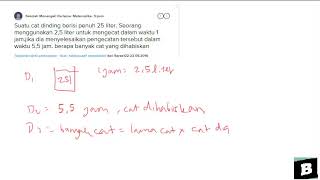 Suatu cat dinding berisi penuh 25 liter. Seorang
menggunakan 2,5 liter untuk mengecat dalam waktu 1
jam,jika dia menyelesaikan pengecatan tersebut dalam
waktu 5,5 jam. berapa banyak cat yang dihabiskan
D₁ 25l 1 jam = 2,5 liter
D₂ = 5,5 jam, cat dihabiskan
D₃ = banyak cat = lama cat x cat
B